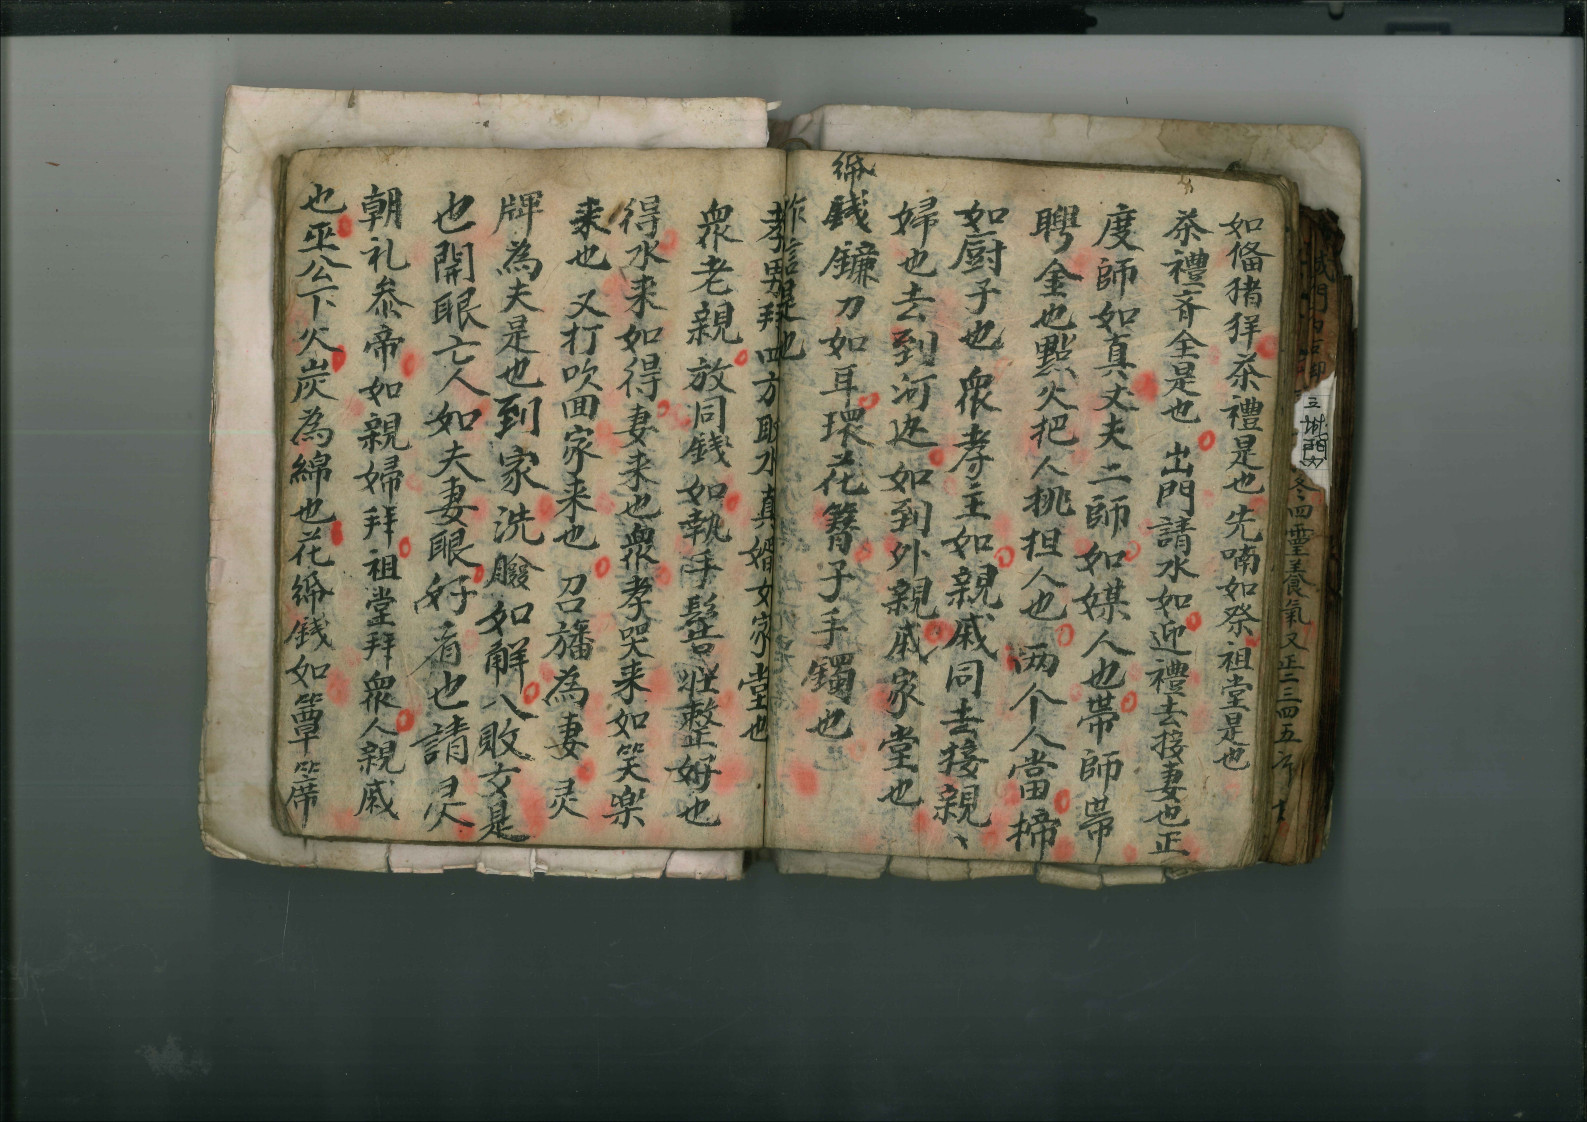 如俻猪羊茶禮是也先喃如祭祖堂是也
茶禮斉全是也出門請水如迎禮去接妻也正
度師如真丈夫二師如媒人也帶師帶
聘金也點火把人挑担人也両个人當擔
如厨子也衆孝主如親戚同去接親
婦也去到河边如到外親戚家堂也
錢鐮刀如耳環花簪子手鐲也
是也
孝男拜四方取水真婿女家堂也
衆老親放洞錢如執手髻粧整好也
得水来如得妻来也衆孝哭来如笑樂
来也又打吹回家来也召旛為妻灵
牌為夫是也到家洗臉如解八敗女是
也開眼亡人如夫妻眼好看也請灵
朝礼叅帝如親婦拜祖堂拜衆人親戚
也巫公下火炭為綿也花錢如簟席
冬四靈養氣又正二三四五